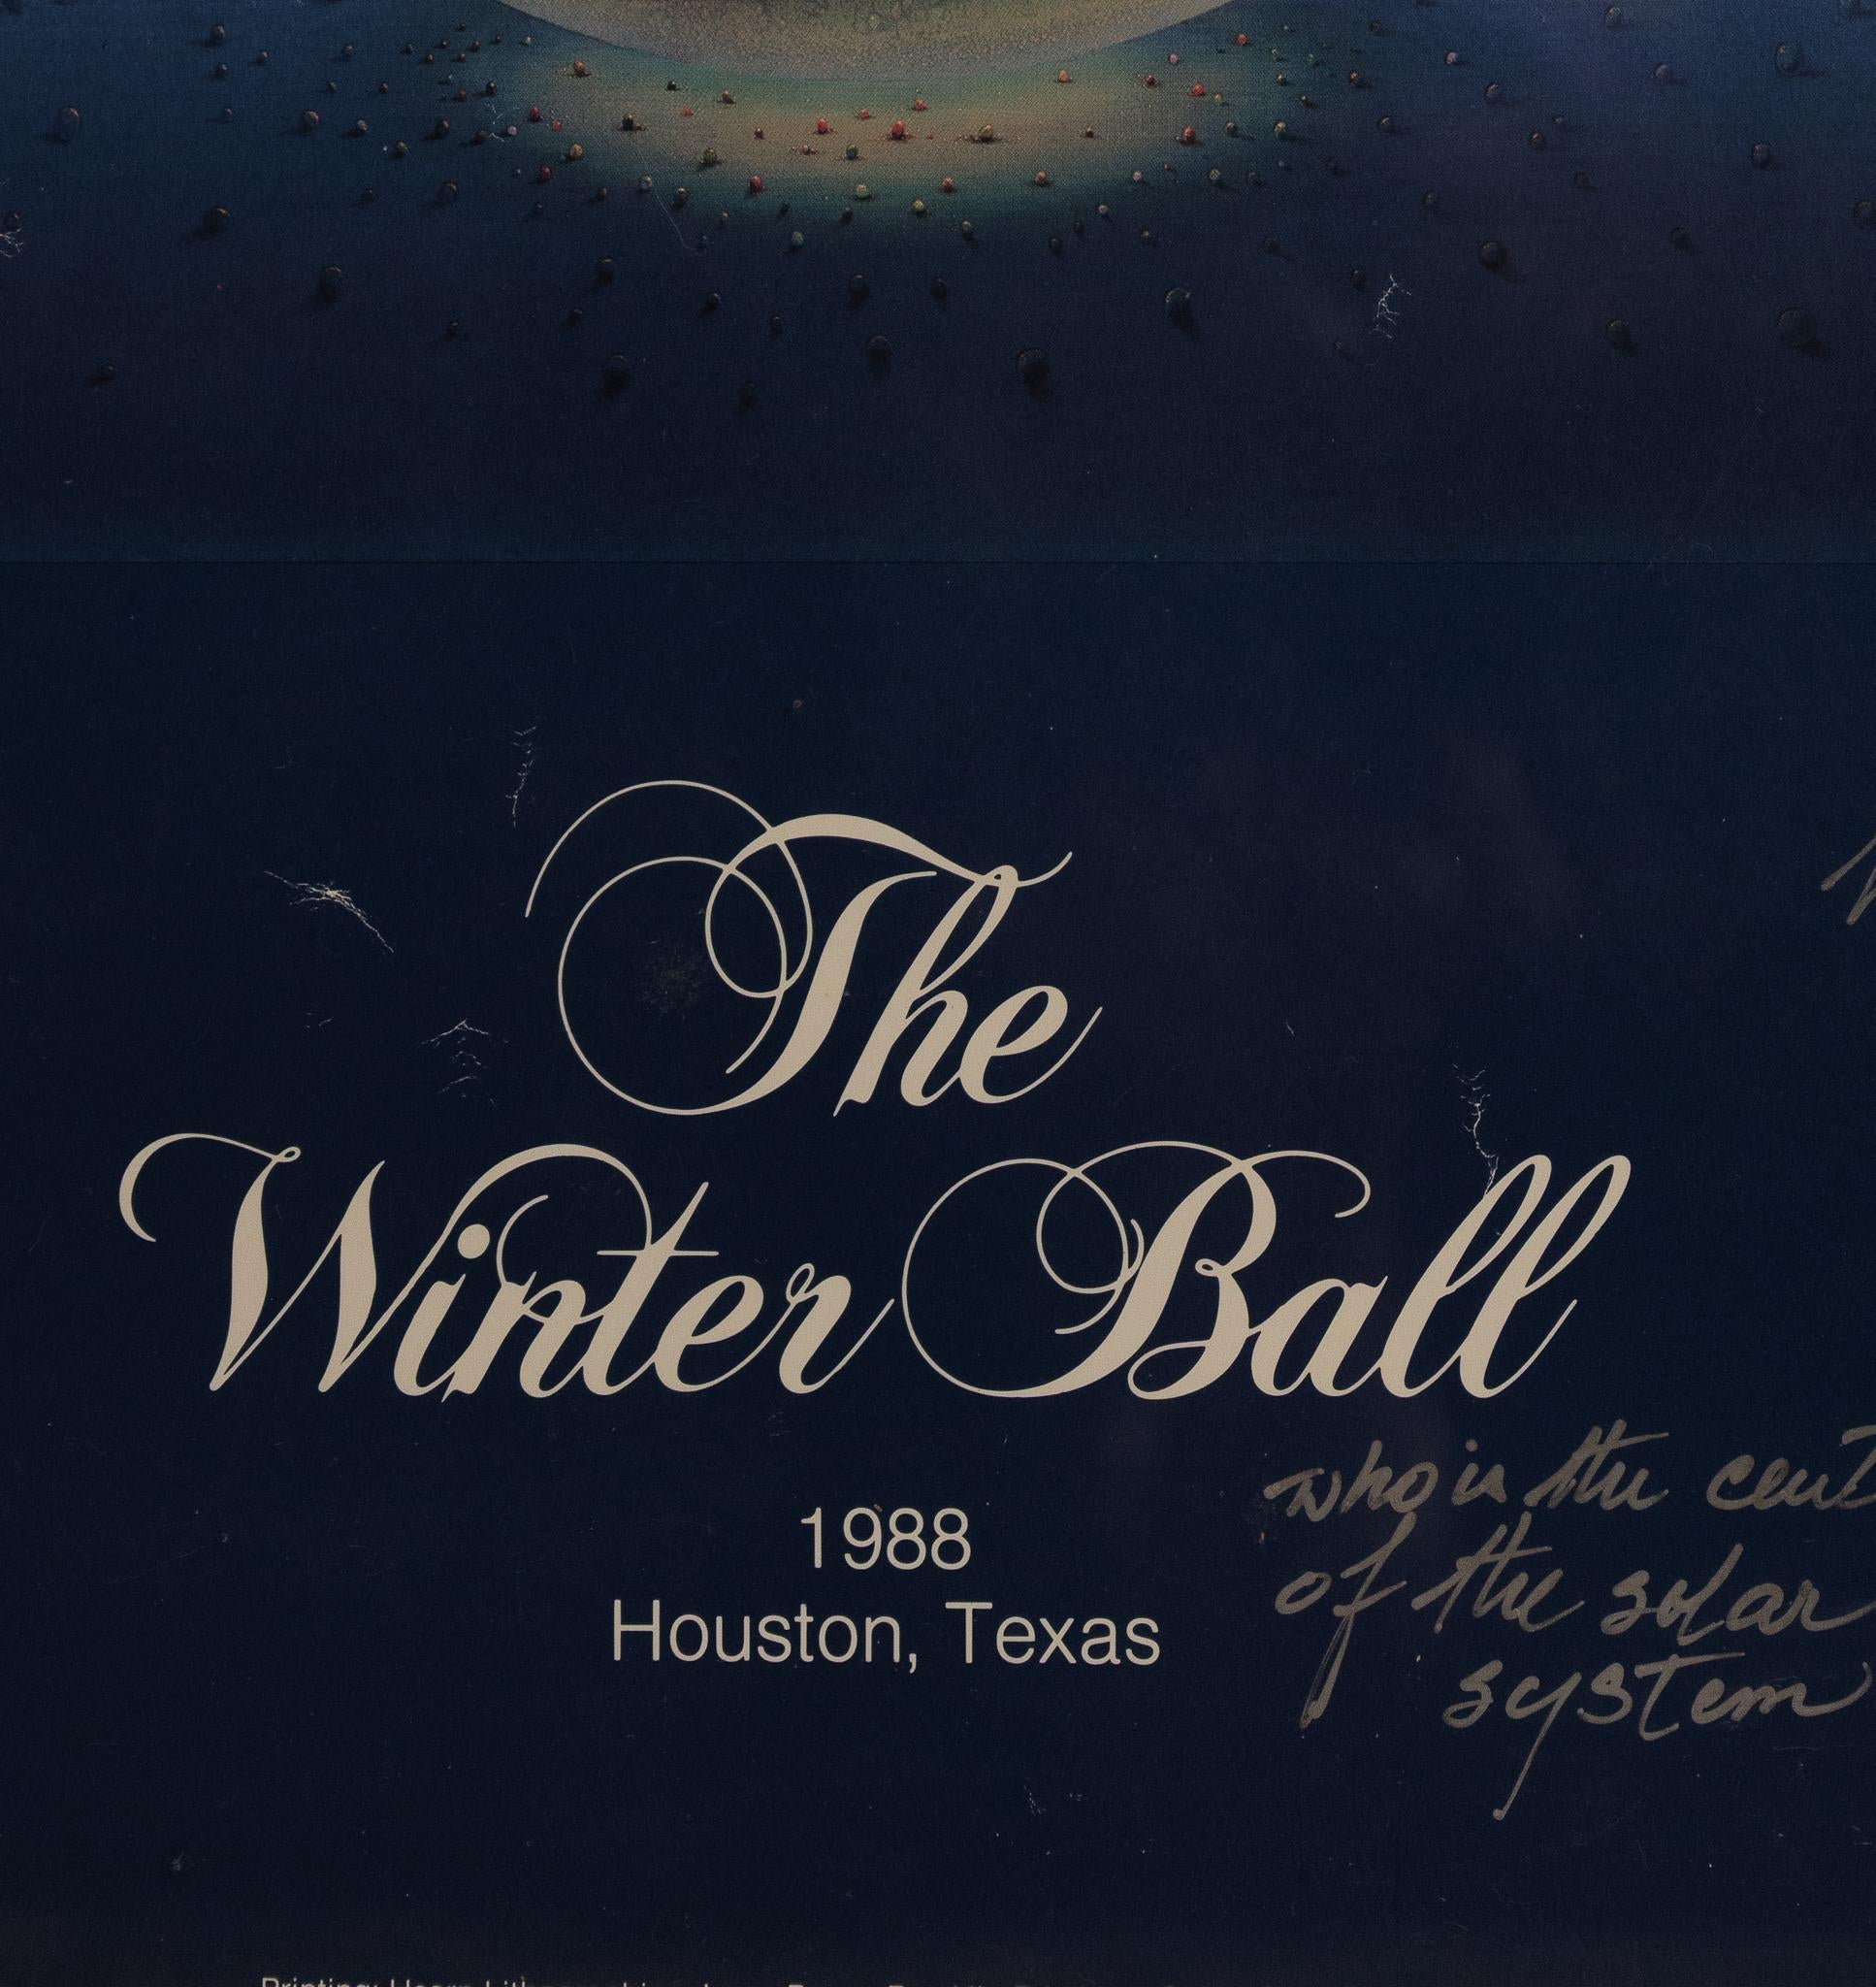 The
Winter Ball
1988
Houston, Texas
who is the cent
of the solar
system